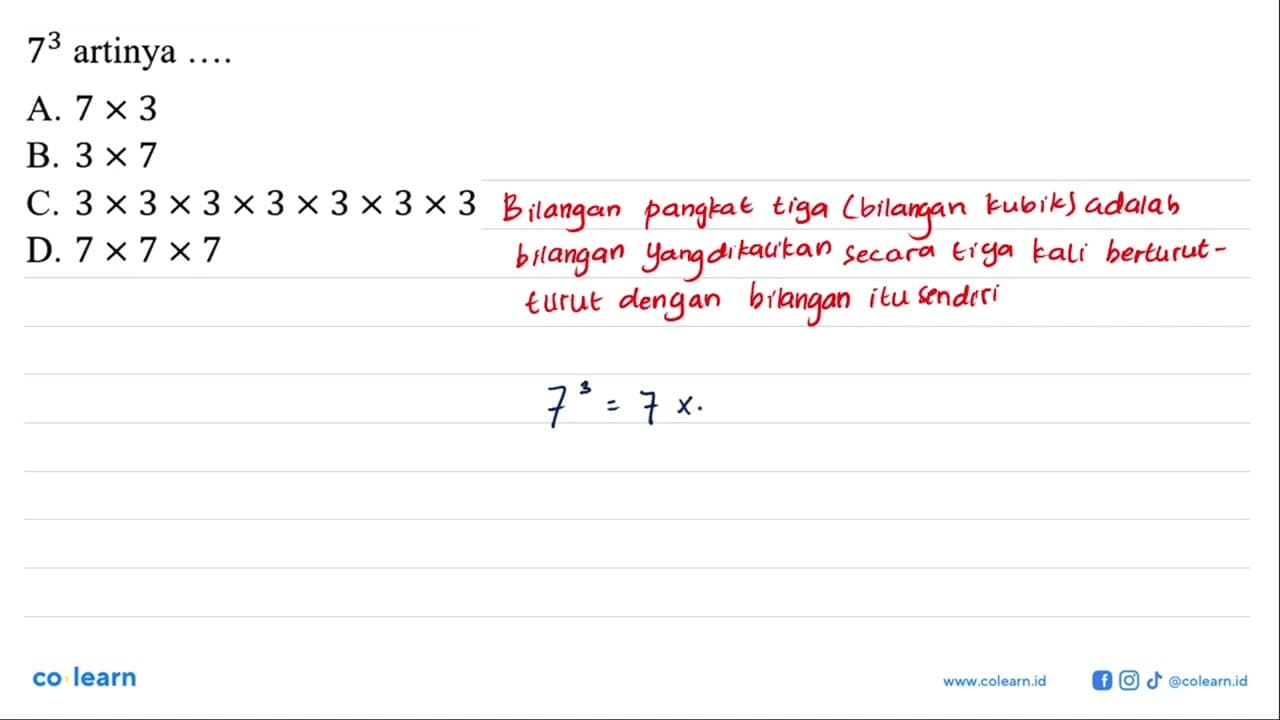 7³ artinya ....
A. 7 × 3
B. 3 × 7
C. 3 × 3 × 3 × 3 × 3 × 3 × 3
D. 7 × 7 × 7
Bilangan pangkat tiga (bilangan kubik) adalah
bilangan yang dikalikan secara tiga kali berturut-
turut dengan bilangan itu sendiri
7³ = 7 ×.
co learn
www.colearn.id
@colearn.id